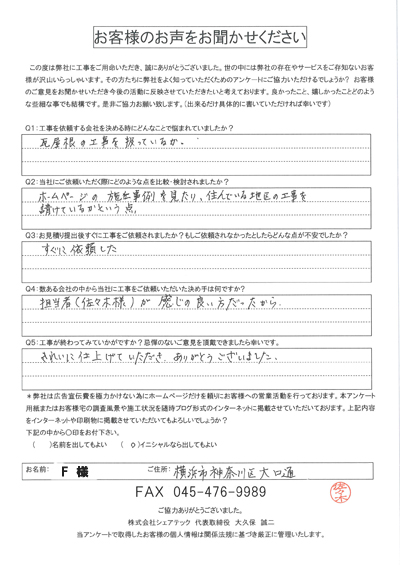 お客様のお声をお聞かせください
この度は弊社に工事をご用命いただき、誠にありがとうございました。世の中には弊社の存在やサービスをご存知ないお客
様が沢山いらっしゃいます。その方たちに弊社をよく知っていただくためのアンケートにご協力いただけるでしょうか？ お客様
のご意見をお聞かせいただき今後の活動に反映させていただきたいと考えております。良かったこと、嬉しかったことどのよう
な些細な事でも結構です。是非ご協力お願い致します。(出来るだけ具体的に書いていただければ幸いです)
Q1：工事を依頼する会社を決める時にどんなことで悩まれていましたか？
瓦屋根の工事を扱っているか。
Q2：当社にご依頼いただく際にどのような点を比較・検討されましたか？
ホームページの施工事例を見たり、住んでいる地区の工事を
請けているかという点。
Q3：お見積り提出後すぐに工事をご依頼されましたか？もしご依頼されなかったとしたらどんな点が不安でしたか？
すぐに依頼した
Q4：数ある会社の中から当社に工事をご依頼いただいた決め手は何ですか？
担当者(佐々木様)が感じの良い方だったから。
Q5：工事が終わってみていかがですか？忌憚のないご意見を頂戴できましたら幸いです。
きれいに仕上げていただき、ありがとうございました。
＊弊社は広告宣伝費を極力かけない為にホームページだけを頼りにお客様への営業活動を行っております。本アンケート
用紙またはお客様宅の調査風景や施工状況を随時ブログ形式のインターネットに掲載させていただいております。上記内容
をインターネットや印刷物に掲載させていただいてもよろしいでしょうか？
下記の中から〇印をお付下さい。
(　　)名前を出してもよい　(○)イニシャルなら出してもよい
お名前： F 様 ご住所： 横浜市神奈川区大口通
FAX 045-476-9989
佐々木
ご協力ありがとうございました。
株式会社シェアテック 代表取締役 大久保 誠二
当アンケートで取得したお客様の個人情報は関係法規に基づき厳正に管理いたします。